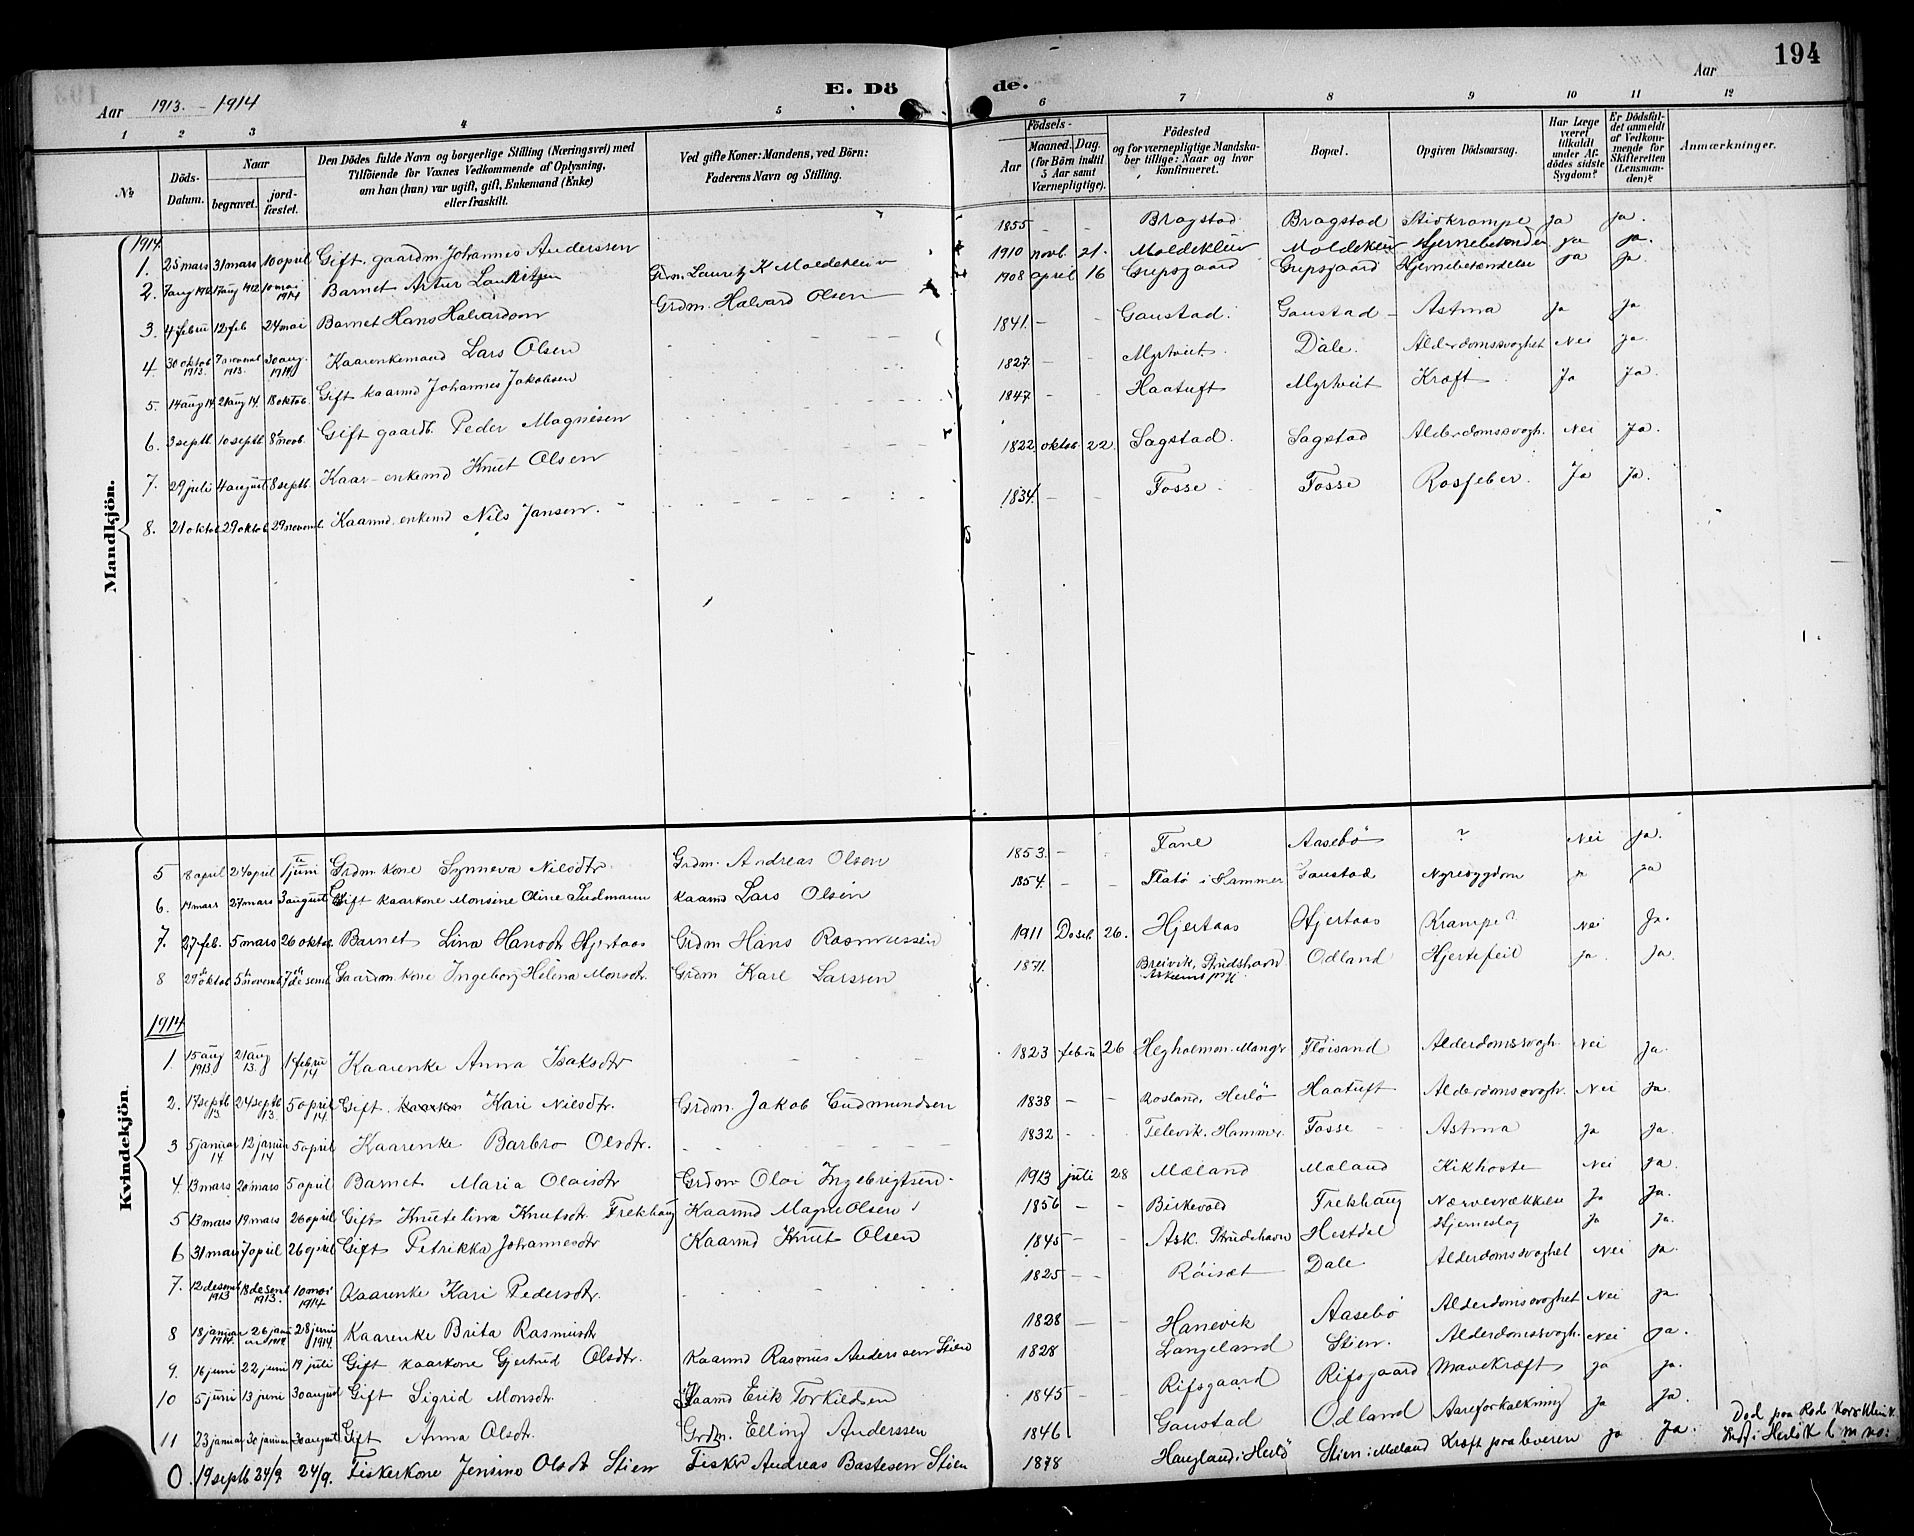 Aar 1913. - 1914
E. Dö de.
Aar
194
1 2 3 4 5 6 7 8 9 10 11 12
№
Döds-Datum.
Naar
begravet.
jord-fæstet.
Den Dödes fulde Navn og borgerlige Stilling (Næringsvei) med
Tilföiende for Voxnes Vedkommende af Oplysning,
om han (hun) var ugift, gift, Enkemand (Enke)
eller fraskilt.
Ved gifte Koner: Mandens, ved Börn:
Faderens Navn og Stilling.
Födsels-
Aar
Maaned. Dag.
(for Börn indtil
5 Aar samt
Værnepligtige).
Födested
og for værnepligtige Mandska-
ber tillige: Naar og hvor
konfirmeret.
Bopæl.
Opgiven Dödsaarsag.
Har Læge
været
tilkaldt
under Af-
dödes sidste
Sygdom?
Er Dödsfal-
det anmeldt
af Vedkom-
mende for
Skifteretten
(Lensman-
den)?
Anmærkninger.
Mandkjön.
1914.
1. 25 mars 31 mars 10 april Gift gaardm Johannes Anderssen 1855 - - Bragstad Bragstad Stivkrampe Ja Ja.
2. 7 aug 1912 17 aug 1912 10 mai 1914 Barnet Artur Lauritzen Grdm. Lauritz K Moldekleiv 1910 novb. 21. Moldekleiv Moldekleiv Hjernebetænder Ja Ja.
3. 4 febru 12 feb 24 mai Barnet Hans Halvardson Grdm. Halvard Olsen 1908 april 16 Gripsgaard Gripsgaard Hjernebetændelse Ja Ja.
4. 30 oktob 1913. 7 novembl 1913. 30 aug. 1914 Kaarenkemand Lars Olsen 1841. - - Gaustad. Gaustad - Astma Ja Ja
5. 14 aug 14. 21 aug 14. 18 oktob. Gift kaarmd Johannes Jakobsen 1827 - - Myrtveit. Dale. Alderdomssvaghet Nei Ja.
6. 3 septb. 10 septb 8 novb. Gift gaardb. Peder Magnesen 1847 - - Haatuft Myrtveit Kræft Ja Ja.
7. 29 juli 4 august 8 septb. Kaar-enkemd Knut Olsen 1822 oktob 22. Sagstad. Sagstad Alderdomssvagh. Nei Ja.
8. 21 oktob 29 oktob 29 novemb. Kaarmd. enkemd Nils Jansen. 1834. - - Fosse Fosse Rosfeber. Ja Ja.
Kvindekjön.
5 8 april 24 april 1 juni Grdm. kone Synneva Nilsdtr. Grdm. Andreas Olsen 1853. - Fane Aasebø ? Nei Ja.
6. mars 27 mars 3 august Gift kaarkone Monsine Oline Ludmann kaarmd Lars Olsen 1854. - - Flatø i Hammer Gaustad Nyresygdom Ja Ja
7. 27 feb. 5 mars 26 oktob. Barnet Lina Hansdtr Hjertaas Grdm Hans Rasmussen 1911 Dcsb. 26. Hjertaas Hjertaas Krampe? Nei Ja.
8 29 oktob 5 novemb 7 desemb. Gaardm. kone Ingeborg Helena Monsdtr. Grdm Karl Larssen 1871. Breivik, Strudshavn Askøens prgj. Odland Hjertefeil Ja. Ja.
1914
1. 15 aug 1913. 21 aug 13. 1 februr 14 Kaarenke Anna Isaksdtr - - 1823 febru 26 Hegholmen. Manger Fløisand Alderdomssvagh. Nei Ja.
2. 17 septb 13. 24 septb 13. 5 april 14 Gift. kaarkon Kari Nilsdtr. Grdm. Jakob Gudmundsen 1838 - - Rosland, Herlø Haatuft Alderdomssvagh. Nei Ja.
3 5 januar 14 12 januar 14 5 april Kaarenke Barbro Olsdtr. - - 1832 - - Televik. Hammer. Fosse - Astma Ja Ja.
4. 13 mars 20 mars 5 april Barnet Maria Olaisdtr Grdm Olai Ingebrigtsen. 1913 juli 28 Mæland Mæland Kikhoste Nei Ja.
5 13 mars 19 mars 26 april Gift Knutelina Knutsdtr Frekhaug Kaarmd Magne Olsen 1856 - - Birkevold Frekhaug Nervesvækkelse Ja Ja.
6 31 mars 7 april 26 april Gift Petrikka Johannesdtr Kaarmd Knut Olsen 1845 - - Ask. Strudshavn Hestdal Hjerneslag Ja Ja.
7. 12 desemb 1913 18 desemb 1913. 10 mai 1914. Kaarenke Kari Pedersdtr. 1825 - - Røisæt Dale Alderdomssvaghet Nei Ja.
8 18 januar 1914. 26 januar 1914. 28 juni 1914. Kaarenke Brita Rasmusdtr 1828 - - Hanevik Aasebø Alderdomssvaghet Nei Ja.
9. 16 juni 22 juni 19 juli Gift kaarkone Gjertrud Olsdtr. Kaarmd Rasmus Anderssen Stien 1828 Langeland Stien. Alderdomssvagh. Nei Ja.
10 5 juni 13 juni 30 august Gift Sigrid Monsdtr. Kaarmd Erik Torkildsen 1845 - - Rifsgaard Rifsgaard Mavekræft Ja Ja.
11 23 januar 30 januar 30 august Gift Anna Olsdtr. Grdm. Elling Anderssen 1846 - - Gaustad Odland Aareforkalkning Ja Ja.
0. 19 septb 24/9. 24/9. Fiskerkone Jensine Olsdtr Stien Fisker Andreas Bastesen Stien 1878 Haugland i Herlø Stien i Mæland Kræft paa leveren Ja Ja. Død paa Røde Kors Klinik
Indf. i Herlø K b m no: